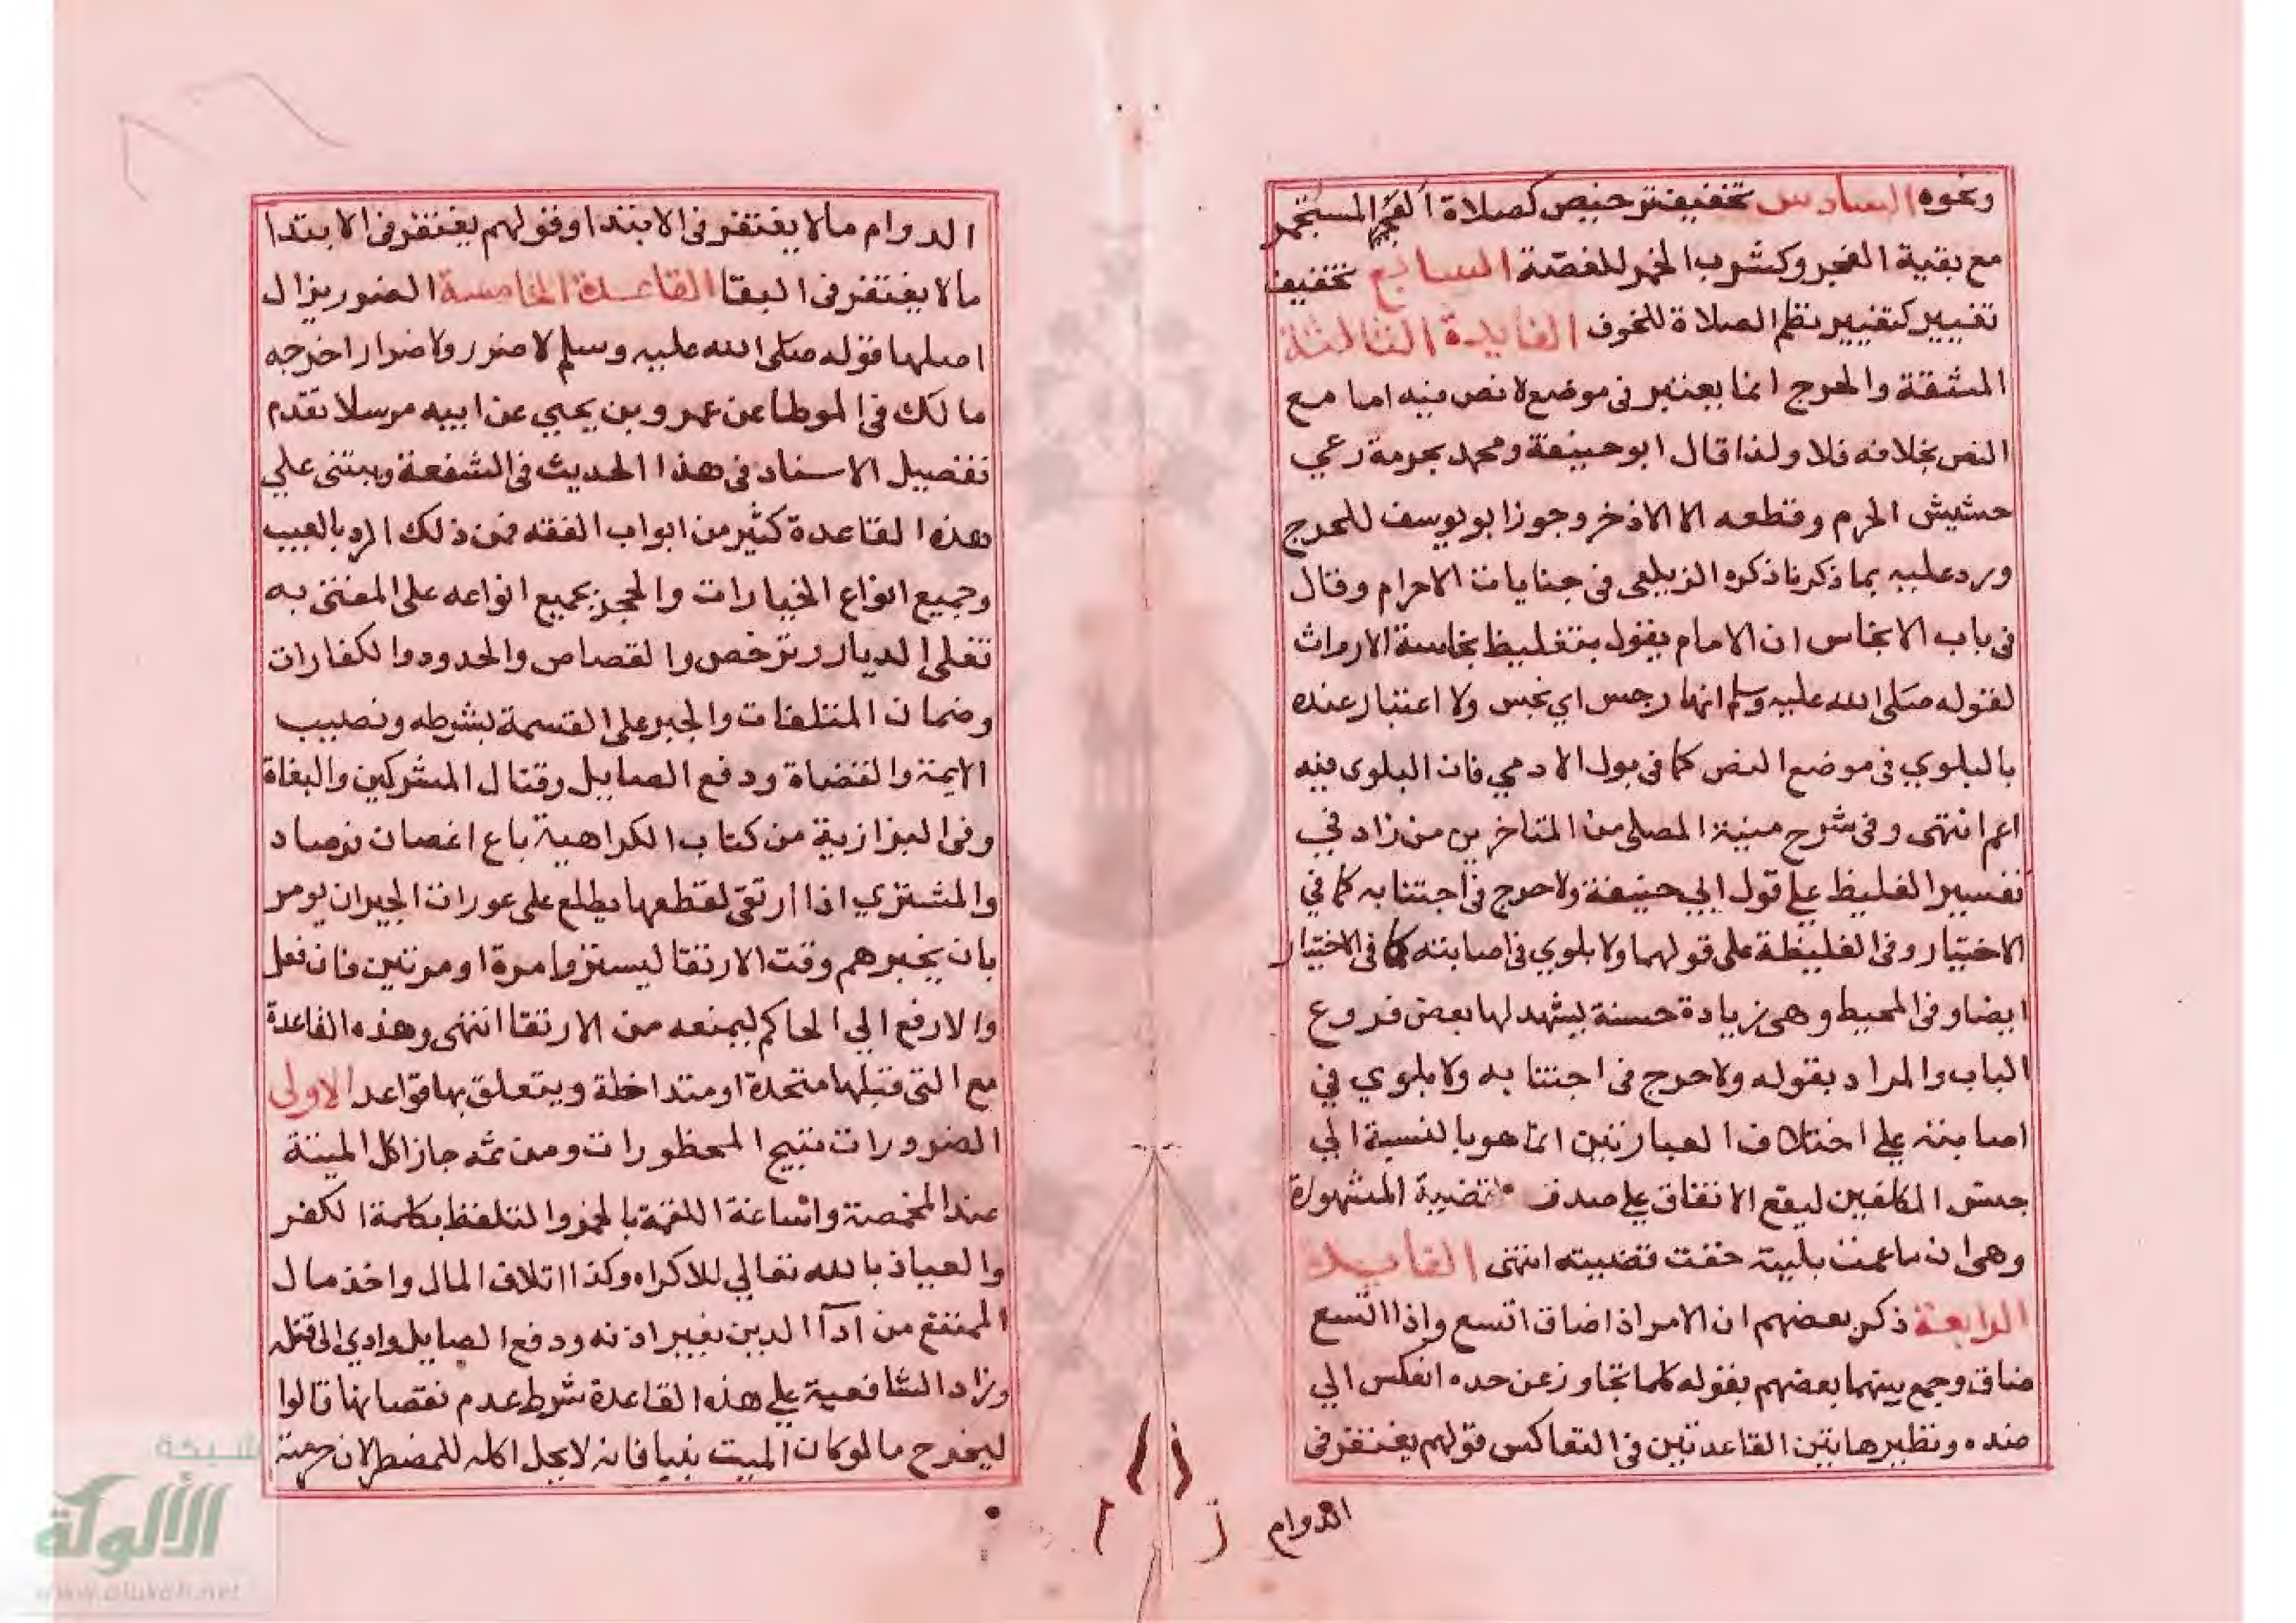 ونحوه السادس تخفيف ترخيص كصلاة المستجمر
مع بقية النجو وكشرب الخمر للغصة السابع تخفيف
تغيير كتغيير نظم الصلاة للخوف الفايدة الثالثة
المشقة والحرج انما يعتبر في موضع لا نص فيه اما مع
النص بخلافه فلا ولذا قال ابو حنيفة ومحمد بحرمة رعي
حشيش الحرم وقطعه الا الاذخر وجوز ابو يوسف للحرج
ورد عليه بما ذكرنا ذكره الزيلعي في جنايات الاحرام وقال
في باب الانجاس ان الامام يقول بتغليظ نجاسة الارواث
لقوله صلى الله عليه وسلم انها رجس اي نجس ولا اعتبار عنده
بالبلوي في موضع النص كما في بول الادمي فان البلوى فيه
اعم انتهى وفي شرح منية المصلى من المتاخرين من زاد في
تفسير الغليظ علي قول ابي حنيفة ولا حرج في اجتنابه كما في
الاختيار وفي الغليظة على قولهما ولا بلوي في اصابته كما في الاختيار
ايضا وفي المحيط وهي زيادة حسنة يشهد لها بعض فروع
الباب والمراد بقوله ولا حرج في اجتنابه ولا بلوي في
اصابته علي اختلاف العبارتين انما هو بالنسبة الي
جنس المكلفين ليقع الاتفاق علي صدق القضية المشهورة
وهي ان ما عمت بليته خفت قضيته انتهى الفايدة
الرابعة ذكر بعضهم ان الامر اذا ضاق اتسع واذا اتسع
ضاق وجمع بينهما بعضهم بقوله كلما تجاوز عن حده انعكس الي
ضده ونظير هاتين القاعدتين في التعاكس قولهم يغتفر في
الدوام
الدوام ما لا يغتفر في الابتدا وقولهم يغتفر في الابتدا
ما لا يغتفر في البقا القاعدة الخامسة الضرر يزال
اصلها قوله صلى الله عليه وسلم لا ضرر ولا ضرار اخرجه
مالك في الموطا عن عمرو بن يحيي عن ابيه مرسلا تقدم
تفصيل الاسناد في هذا الحديث في الشفعة ويبتنى علي
هذه القاعدة كثير من ابواب الفقه فمن ذلك الرد بالعيب
وجميع انواع الخيارات والحجر بجميع انواعه على المفتى به
تغلى الديار وترخص والقصاص والحدود والكفارات
وضمان المتلفات والجبر على القسمة بشرطه ونصيب
الايمة والقضاة ودفع الصايل وقتال المشركين والبغاة
وفي البزازية من كتاب الكراهية باع اغصان فرصاد
والمشتري اذا ارتقى لقطعها يطلع على عورات الجيران يومر
بان يخبرهم وقت الارتقا ليستتروا مرة او مرتين فان فعل
والا رفع الي الحاكم ليمنعه من الارتقا انتهى وهذه القاعدة
مع التي قبلها متحدة او متداخلة ويتعلق بها قواعد الاولى
الضرورات تبيح المحظورات ومن ثمه جاز اكل الميتة
عند المخمصة واساغة اللقمة بالخمر والتلفظ بكلمة الكفر
والعياذ بالله تعالي للاكراه وكذا اتلاف المال واخذ مال
الممتنع من ادآ الدين بغير اذنه ودفع الصايل وادي الى قتله
وزاد الشافعية علي هذه القاعدة شرط عدم نقصانها قالوا
ليخرج ما لو كان الميت نبيا فانه لا يحل اكله للمضطر لان حرمته
شبكة
الألوكة
www.alukah.net